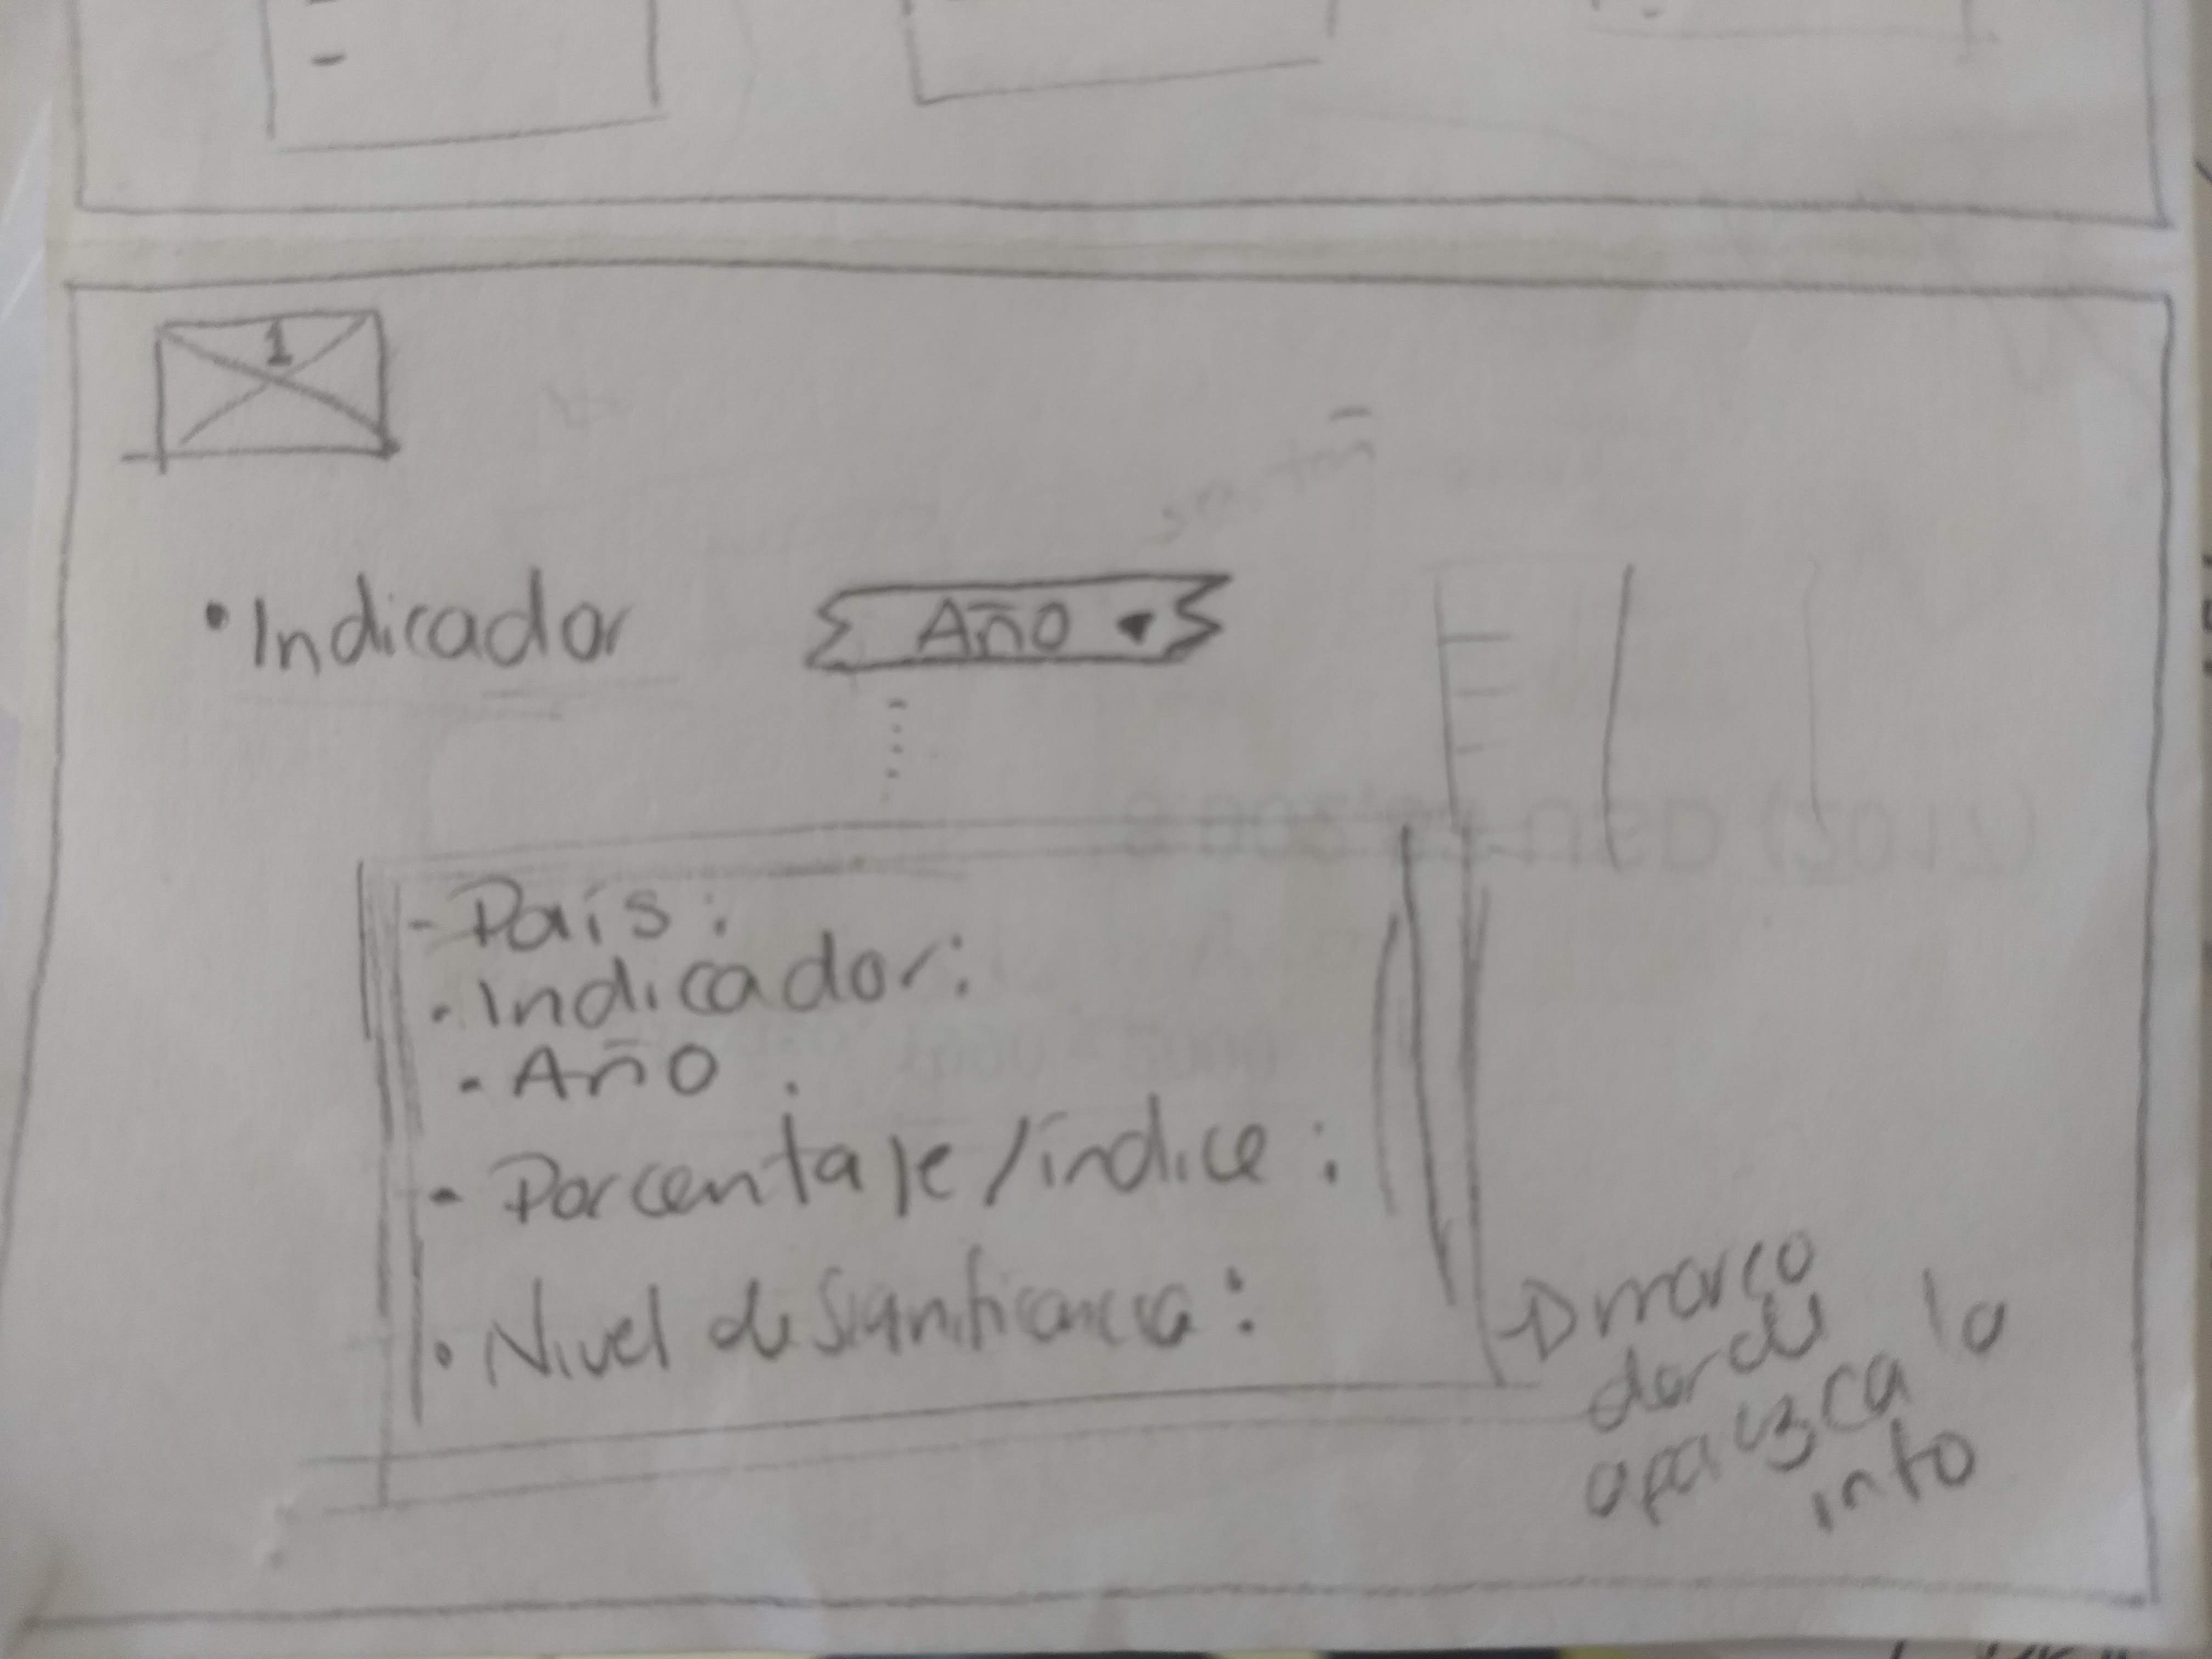 1
• Indicador
Año ▾
- País:
• Indicador:
• Año :
• Porcentaje/índice:
• Nivel de Significancia:
→ marco
donde
aparezca la
info